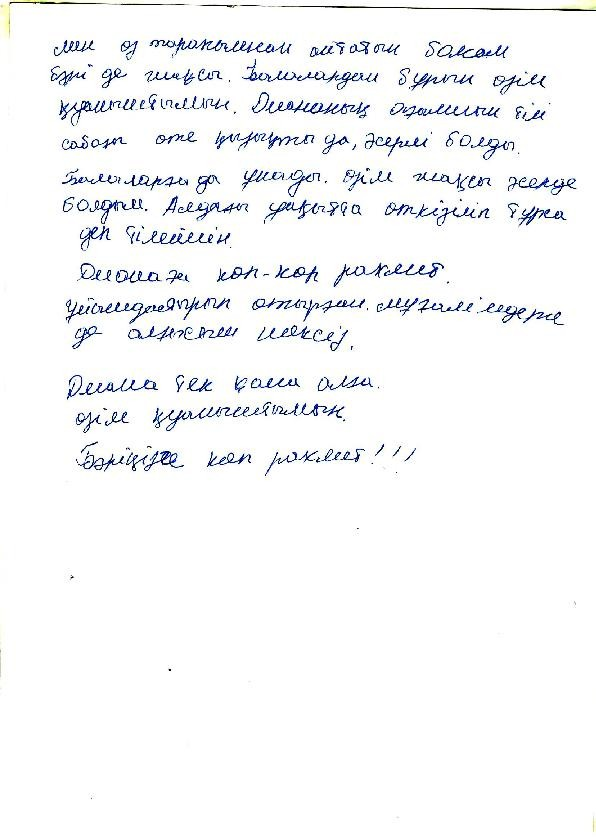 мен өз тарапымнан айтатын болсам
бәрі де жақсы. Балалардан бұрын өзім
қуаныштымын. Диананың ағылшын тілі
сабағы өте қызықты да, әсерлі болды.
Балаларға да ұнады. Өзім жақсы әсерде
болдым. Алдағы уақытта өткізіліп тұрса
деп тілеймін.
Дианаға көп-көп рахмет.
Ұйымдастырып отырған мұғалімдерге
де алғысым шексіз.
Диана тек қана алға.
өзім қуаныштымын.
Бәріңізге көп рахмет!!!